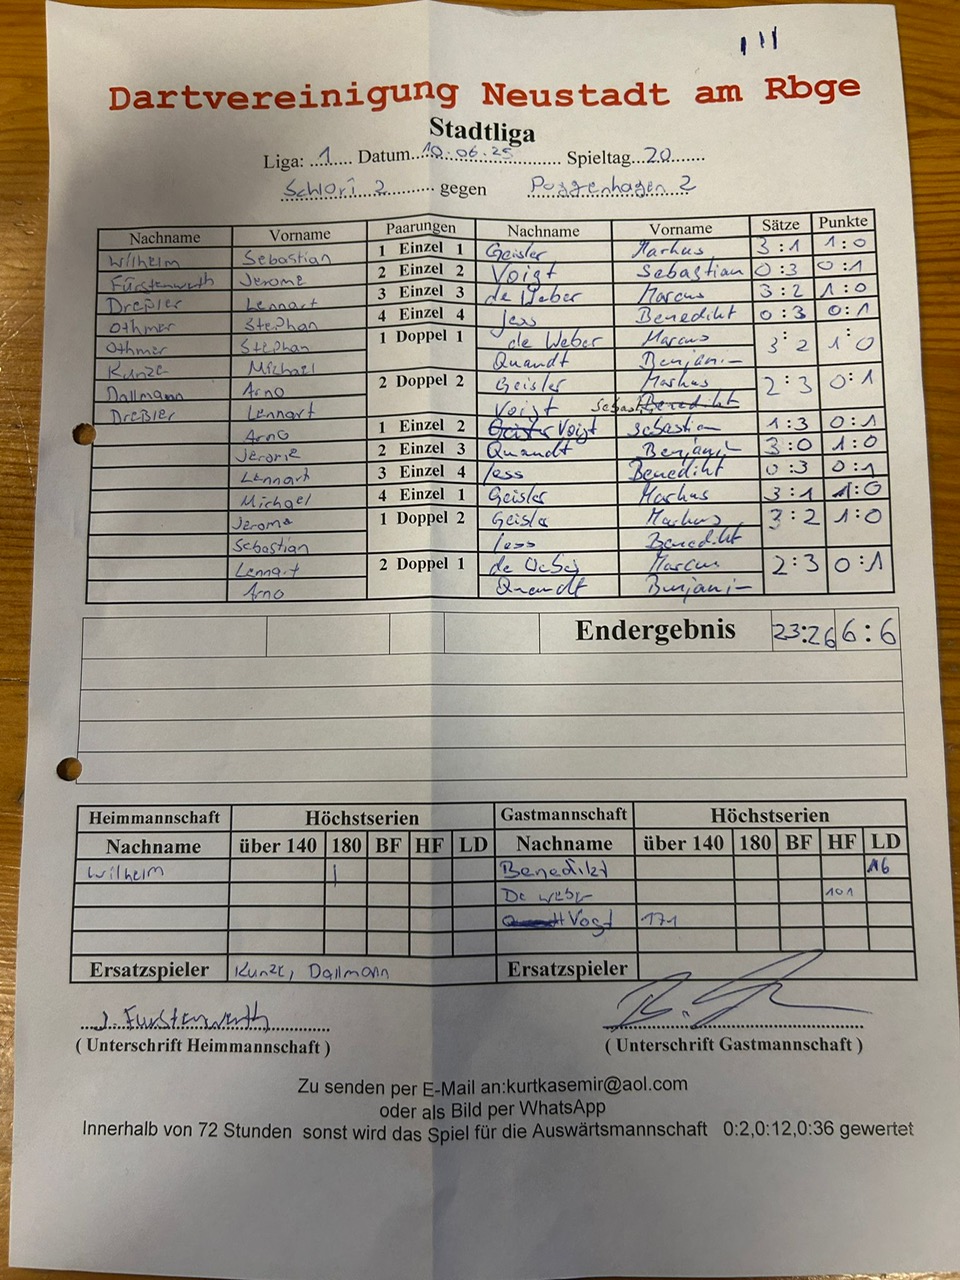 Dartvereinigung Neustadt am Rbge
Stadtliga
Liga: 1 Datum 10.06.25 Spieltag 20
Schlori 2 gegen Poggenhagen 2
Nachname Vorname Paarungen Nachname Vorname Sätze Punkte
Wilhelm Sebastian 1 Einzel 1 Geisler Markus 3:1 1:0
Fürstenwerth Jerome 2 Einzel 2 Voigt Sebastian 0:3 0:1
Dreßler Lennart 3 Einzel 3 de Weber Marcus 3:2 1:0
Othmer Stephan 4 Einzel 4 Jess Benedikt 0:3 0:1
Othmer Stephan 1 Doppel 1 de Weber Marcus 3:2 1:0
Kunze Michael Quandt Benjamin
Dallmann Arno 2 Doppel 2 Geisler Markus 2:3 0:1
Dreßler Lennart Voigt Sebast Benedikt
Arno 1 Einzel 2 Geisler Voigt Sebastian 1:3 0:1
Jerome 2 Einzel 3 Quandt Benjamin 3:0 1:0
Lennart 3 Einzel 4 Jess Benedikt 0:3 0:1
Michael 4 Einzel 1 Geisler Markus 3:1 1:0
Jerome 1 Doppel 2 Geisler Markus 3:2 1:0
Sebastian Jess Benedikt
Lennart 2 Doppel 1 de Weber Marcus 2:3 0:1
Arno Quandt Benjamin
Endergebnis 23:26 6:6
Heimmannschaft Höchstserien Gastmannschaft Höchstserien
Nachname über 140 180 BF HF LD Nachname über 140 180 BF HF LD
Wilhelm | Benedikt 16
De Weber 101
Voigt 171
Ersatzspieler Kunze, Dallmann Ersatzspieler
J. Fürstenwerth
( Unterschrift Heimmannschaft ) ( Unterschrift Gastmannschaft )
Zu senden per E-Mail an:kurtkasemir@aol.com
oder als Bild per WhatsApp
Innerhalb von 72 Stunden sonst wird das Spiel für die Auswärtsmannschaft 0:2,0:12,0:36 gewertet